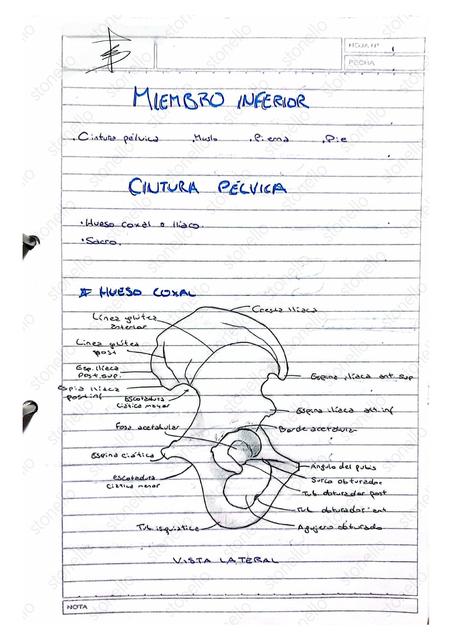 HOJA Nº 1
FECHA
MIEMBRO INFERIOR
. Cintura pélvica . Muslo . Pierna . Pie
CINTURA PÉLVICA
• Hueso coxal o Ilíaco.
• Sacro.
# HUESO COXAL
Cresta Ilíaca
Línea glútea
Anterior
Línea glútea
post
Esp. ilíaca
Post. sup.
Espina ilíaca ant. sup
Espia ilíaca
post. inf
Escotadura
Ciática mayor
Espina ilíaca ant. inf
Fosa acetabular
Borde acetabular
Espina ciática
Angulo del pubis
escotadura
Ciática menor
Surco obturador
Tub. obturador post
Tub obturador ant
Tub isquiática
Agujero obturado
VISTA LATERAL
NOTA
stonello